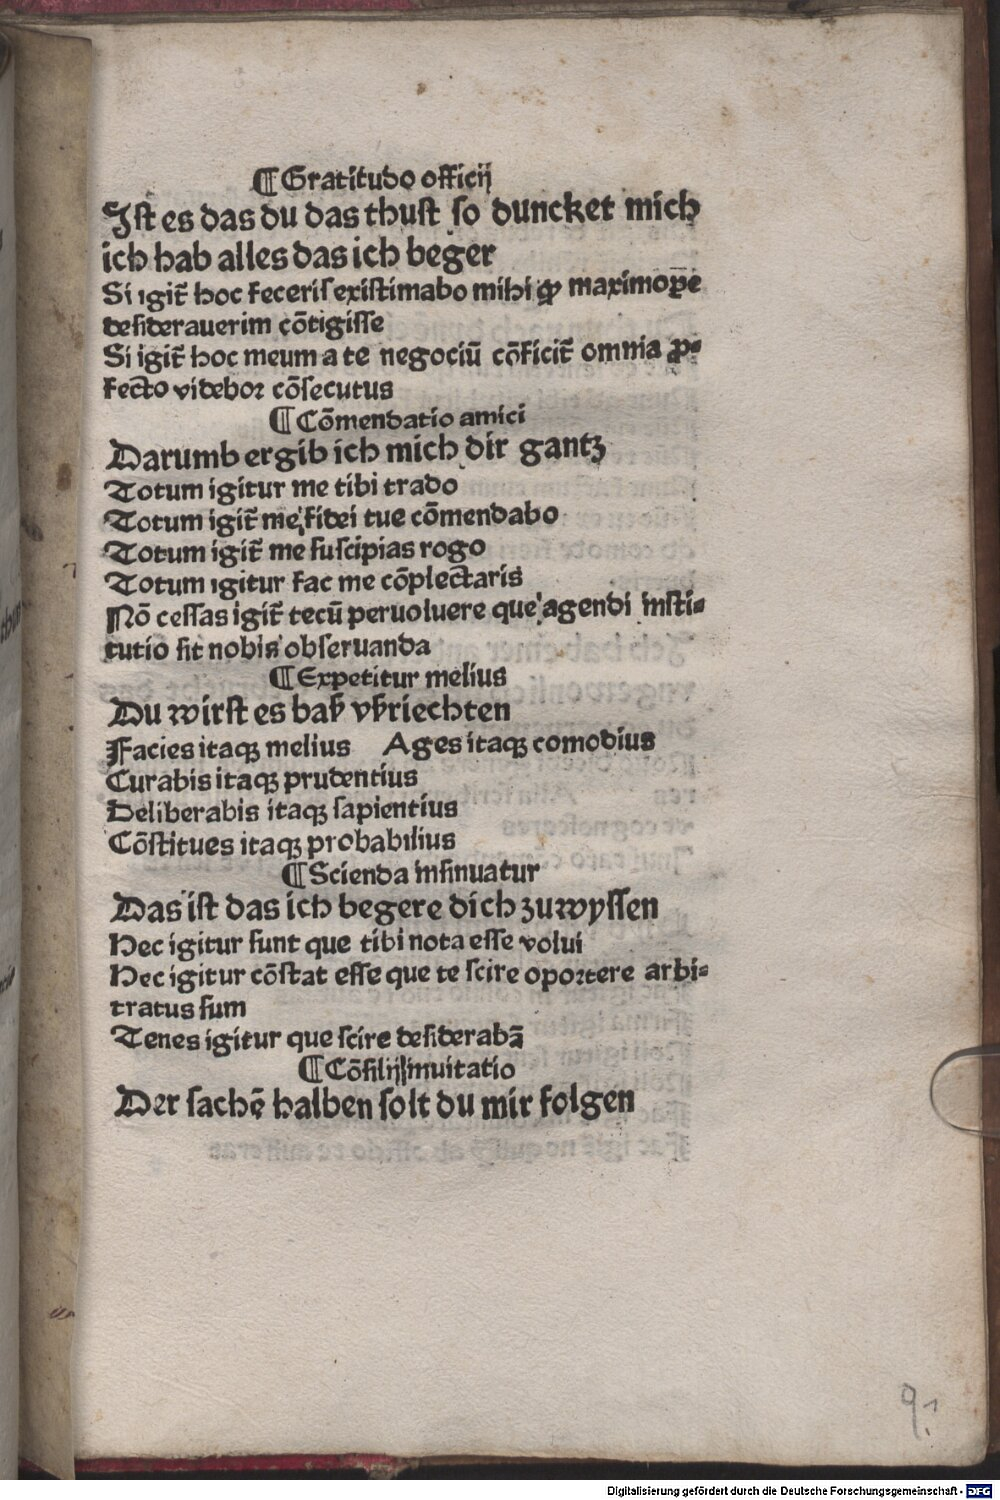 ¶ Gratitudo officij
Jst es das du das thust so duncket mich
ich hab alles das ich beger
Si igit̃ hoc feceris existimabo mihi ꝙ maximoꝑe
desiderauerim cõtigisse
Si igit̃ hoc meum a te negociũ cõficit̃ omnia ꝓ-
fecto videbor cõsecutus
¶ Cõmendatio amici
Darumb ergib ich mich dir gantz
Totum igitur me tibi trado
Totum igit̃ me fidei tue cõmendabo
Totum igit̃ me suscipias rogo
Totum igitur fac me cõplectaris
Nõ cessas igit̃ tecũ peruoluere que agendi insti-
tutio sit nobis obseruanda
¶ Expetitur melius
Du wirst es baß vßriechten
Facies itaqꝫ melius Ages itaqꝫ comodius
Curabis itaqꝫ prudentius
Deliberabis itaqꝫ sapientius
Cõstitues itaqꝫ probabilius
¶ Scienda insinuatur
Das ist das ich begere dich zuwyssen
Hec igitur sunt que tibi nota esse volui
Hec igitur cõstat esse que te scire oportere arbi-
tratus sum
Tenes igitur que scire desiderabã
¶ Cõsilij inuitatio
Der sachẽ halben solt du mir folgen
9.
Digitalisierung gefördert durch die Deutsche Forschungsgemeinschaft - DFG